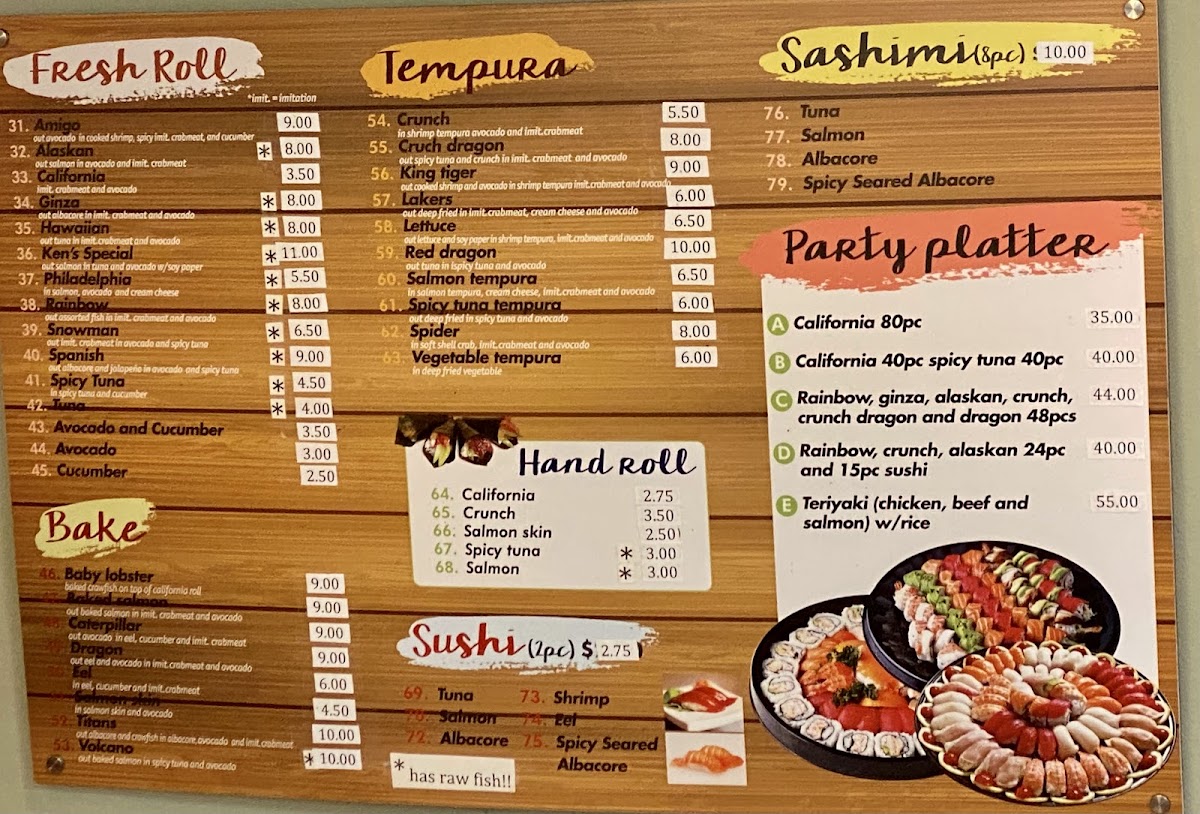 Fresh Roll
*imit. = imitation
31. Amigo 9.00
out avocado in cooked shrimp, spicy imit. crabmeat, and cucumber
32. Alaskan * 8.00
out salmon in avocado and imit. crabmeat
33. California 3.50
imit. crabmeat and avocado
34. Ginza * 8.00
out albacore in imit. crabmeat and avocado
35. Hawaiian * 8.00
out tuna in imit.crabmeat and avocado
36. Ken's Special * 11.00
out salmon in tuna and avocado w/soy paper
37. Philadelphia * 5.50
in salmon, avocado and cream cheese
38. Rainbow * 8.00
out assorted fish in imit. crabmeat and avocado
39. Snowman * 6.50
out imit. crabmeat in avocado and spicy tuna
40. Spanish * 9.00
out albacore and jalapeño in avocado and spicy tuna
41. Spicy Tuna * 4.50
in spicy tuna and cucumber
42. Tuna * 4.00
43. Avocado and Cucumber 3.50
44. Avocado 3.00
45. Cucumber 2.50
Bake
46. Baby lobster 9.00
baked crawfish on top of california roll
47. Baked salmon 9.00
out baked salmon in imit. crabmeat and avocado
48. Caterpillar 9.00
out avocado in eel, cucumber and imit. crabmeat
49. Dragon 9.00
out eel and avocado in imit.crabmeat and avocado
50. Eel 6.00
in eel, cucumber and imit.crabmeat
51. Salmon skin 4.50
in salmon skin and avocado
52. Titans 10.00
out albacore and crawfish in albacore,avocado and imit.crabmeat
53. Volcano * 10.00
out baked salmon in spicy tuna and avocado
Tempura
54. Crunch 5.50
in shrimp tempura avocado and imit.crabmeat
55. Cruch dragon 8.00
out spicy tuna and crunch in imit. crabmeat and avocado
56. King tiger 9.00
out cooked shrimp and avocado in shrimp tempura imit.crabmeat and avocado
57. Lakers 6.00
out deep fried in imit.crabmeat, cream cheese and avocado
58. Lettuce 6.50
out lettuce and soy paper in shrimp tempura, imit.crabmeat and avocado
59. Red dragon 10.00
out tuna in ispicy tuna and avocado
60. Salmon tempura 6.50
in salmon tempura, cream cheese, imit.crabmeat and avocado
61. Spicy tuna tempura 6.00
out deep fried in spicy tuna and avocado
62. Spider 8.00
in soft shell crab, imit.crabmeat and avocado
63. Vegetable tempura 6.00
in deep fried vegetable
Hand Roll
64. California 2.75
65. Crunch 3.50
66. Salmon skin 2.50
67. Spicy tuna * 3.00
68. Salmon * 3.00
Sushi (2pc) $ 2.75
69. Tuna
70. Salmon
72. Albacore
73. Shrimp
74. Eel
75. Spicy Seared
Albacore
* has raw fish!!
Sashimi (8pc) $ 10.00
76. Tuna
77. Salmon
78. Albacore
79. Spicy Seared Albacore
Party platter
A California 80pc 35.00
B California 40pc spicy tuna 40pc 40.00
C Rainbow, ginza, alaskan, crunch, 44.00
crunch dragon and dragon 48pcs
D Rainbow, crunch, alaskan 24pc 40.00
and 15pc sushi
E Teriyaki (chicken, beef and 55.00
salmon) w/rice